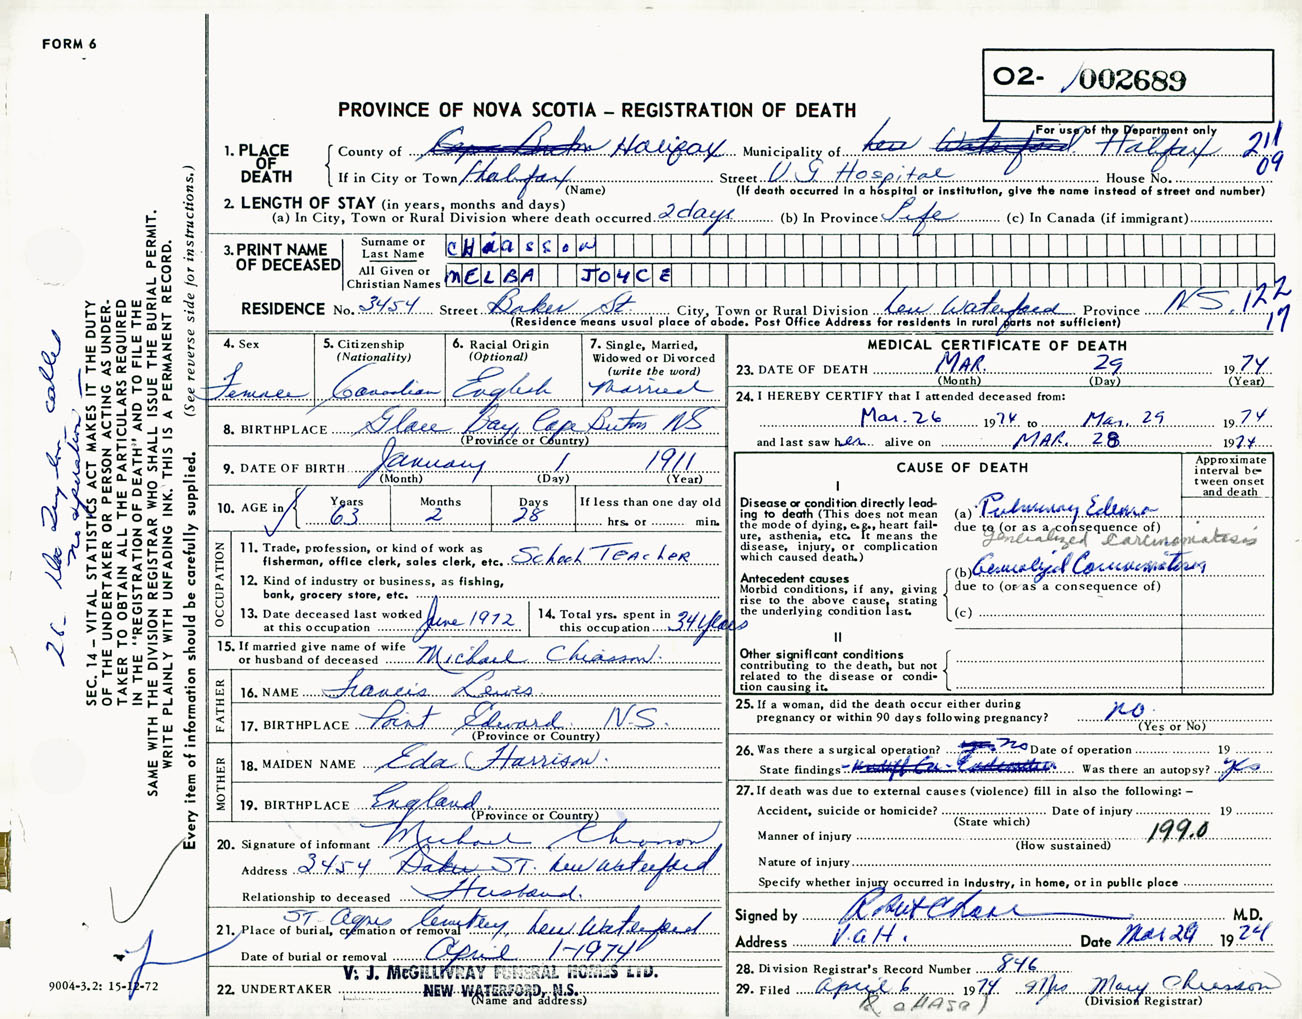 FORM 6
O2- 002689
PROVINCE OF NOVA SCOTIA – REGISTRATION OF DEATH
For use of the Department only
1. PLACE OF DEATH
County of Cape Breton Halifax Municipality of New Waterford Halifax
211
09
If in City or Town Halifax (Name) Street V G Hospital House No.
(If death occurred in a hospital or institution, give the name instead of street and number)
2. LENGTH OF STAY (in years, months and days)
(a) In City, Town or Rural Division where death occurred 2 days (b) In Province Life (c) In Canada (if immigrant)
3. PRINT NAME OF DECEASED
Surname or Last Name CHIASSON
All Given or Christian Names MELBA JOYCE
RESIDENCE No. 3454 Street Baker St. City, Town or Rural Division New Waterford Province N.S.
122
17
(Residence means usual place of abode. Post Office Address for residents in rural parts not sufficient)
4. Sex Female
5. Citizenship (Nationality) Canadian
6. Racial Origin (Optional) English
7. Single, Married, Widowed or Divorced (write the word) Married
8. BIRTHPLACE Glace Bay, Cape Breton NS
(Province or Country)
9. DATE OF BIRTH January 1 1911
(Month) (Day) (Year)
10. AGE in Years 63 Months 2 Days 28
If less than one day old hrs. or min.
OCCUPATION
11. Trade, profession, or kind of work as fisherman, office clerk, sales clerk, etc. School TEACHER
12. Kind of industry or business, as fishing, bank, grocery store, etc.
13. Date deceased last worked at this occupation June 1972
14. Total yrs. spent in this occupation 34 years
15. If married give name of wife or husband of deceased Michael Chiasson.
FATHER
16. NAME Francis Lewis
17. BIRTHPLACE Point Edward N.S.
(Province or Country)
MOTHER
18. MAIDEN NAME Eda Harrison.
19. BIRTHPLACE England
(Province or Country)
20. Signature of informant Michael Chiasson
Address 3454 Baker ST. New Waterford
Relationship to deceased Husband.
21. Place of burial, cremation or removal ST. Agnes Cemetery, New Waterford
Date of burial or removal April 1-1974
22. UNDERTAKER V. J. McGILLIVRAY FUNERAL HOMES LTD.
NEW WATERFORD, N.S.
(Name and address)
MEDICAL CERTIFICATE OF DEATH
23. DATE OF DEATH MAR. 29 1974
(Month) (Day) (Year)
24. I HEREBY CERTIFY that I attended deceased from:
Mar. 26 1974 to Mar. 29 1974
and last saw her alive on MAR. 28 1974
CAUSE OF DEATH
Approximate interval between onset and death
I
Disease or condition directly leading to death (This does not mean the mode of dying, e.g., heart failure, asthenia, etc. It means the disease, injury, or complication which caused death.)
(a) Pulmonary Edema
due to (or as a consequence of)
Generalized Carcinomatosis
Antecedent causes
Morbid conditions, if any, giving rise to the above cause, stating the underlying condition last.
(b) Generalized Carcinomatosis
due to (or as a consequence of)
(c)
II
Other significant conditions
contributing to the death, but not related to the disease or condition causing it.
25. If a woman, did the death occur either during pregnancy or within 90 days following pregnancy? no.
(Yes or No)
26. Was there a surgical operation? yes No Date of operation 19
State findings Was there an autopsy? yes
27. If death was due to external causes (violence) fill in also the following: –
Accident, suicide or homicide? Date of injury 19
(State which)
Manner of injury 199.0
(How sustained)
Nature of injury
Specify whether injury occurred in industry, in home, or in public place
Signed by M.D.
Address V.G.H. Date Mar 29 1974
28. Division Registrar's Record Number 846
29. Filed April 6 1974 Mrs Mary Chiasson
(Division Registrar)
SEC. 14 – VITAL STATISTICS ACT MAKES IT THE DUTY
OF THE UNDERTAKER OR PERSON ACTING AS UNDER-
TAKER TO OBTAIN ALL THE PARTICULARS REQUIRED
IN THE "REGISTRATION OF DEATH" AND TO FILE THE
SAME WITH THE DIVISION REGISTRAR WHO SHALL ISSUE THE BURIAL PERMIT.
WRITE PLAINLY WITH UNFADING INK. THIS IS A PERMANENT RECORD.
Every item of information should be carefully supplied. (See reverse side for instructions.)
26- called
no operation
9004-3.2: 15-12-72